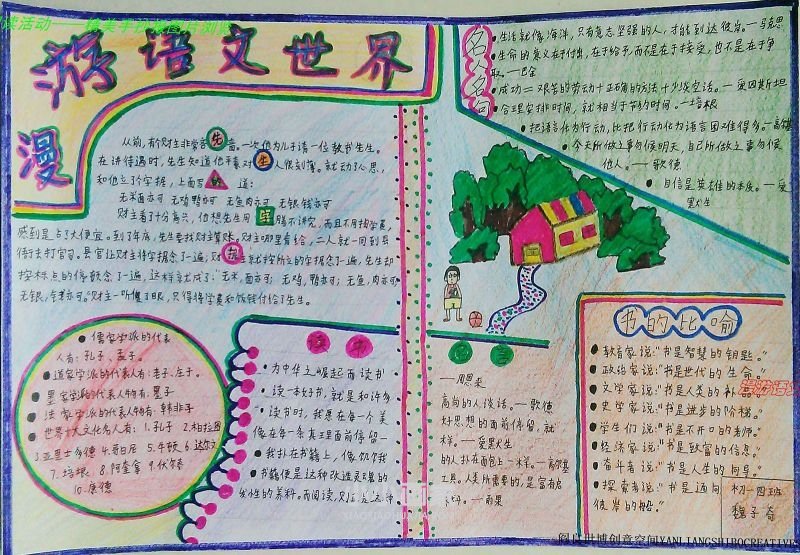 读活动——精美手抄报图片浏览
漫游语文世界
从前,有个财主非常吝啬。一次他为儿子请一位教书先生。
在讲待遇时,先生知道他平素对人很刻薄。就动了心思,
和他立了字据,上面写道:
无米面亦可 无鸡鸭亦可 无鱼肉亦可 无银钱亦可
财主看了十分高兴,他想先生用膳不讲究,而且不用拘学费,
感到是占了大便宜。到了年底,先生要找财主算账。财主哪里肯给,二人就一同到县
衙去打官司。县官让财主将字据念了一遍,财主就按所立的字据念了一遍,先生却
按标点的停顿念了一遍,这样就成了:“无米,面亦可;无鸡,鸭亦可;无鱼,肉亦可
无银,钱亦可。”财主一听傻了眼,只得将学费和饭钱付给了先生。
名人名句
生活就像海洋,只有意志坚强的人,才能到达彼岸。—马克思
生命的意义在于付出,在于给予,而不是在于接受,也不是在于争
取。—巴金
成功=艰苦的劳动+正确的方法+少谈空话。—爱因斯坦
合理安排时间,就相当于节约时间。—培根
把语言化为行动,比把行动化为语言困难得多。—高尔基
今天所做之事勿候明天,自己所做之事勿候
他人。—歌德
自信是英雄的本质。—爱
默生
儒家学派的代表
人有:孔子、孟子。
道家学派的代表人有:老子、庄子。
墨家学派的代表人物有:墨子
法家学派的代表人物有:韩非子
世界十大文化名人有:1.孔子 2.柏拉图
3.亚里士多德 4.哥白尼 5.牛顿 6.达尔文
7.培根 8.阿奎拿 9.伏尔泰
10.康德
读书
名言
为中华之崛起而读书 ——周恩来
读一本好书,就是和许多高尚的人谈话。—歌德
读书时,我愿在每个美好思想的面前停留,就
像在每一条真理面前停留一样。—爱默生
我扑在书籍上,像饥饿的人扑在面包上一样。—高尔基
书籍便是这种改造灵魂的工具。人类所需要的,是富有启
发性的养料。而阅读,则正是这种养料。—雨果
书的比喻
教育家说:“书是智慧的钥匙。”
政治家说:“书是世代的生命。”
文学家说:“书是人类的补
史学家说:“书是进步的阶梯。”
学生们说:“书是不开口的老师。”
经济家说:“书是致富的信息。”
奋斗者说:“书是人生的向导。”
探索者说:“书是通向
彼岸的船。”
初一四班
魏子奇
YANLIANGSHIBOCREATIVE